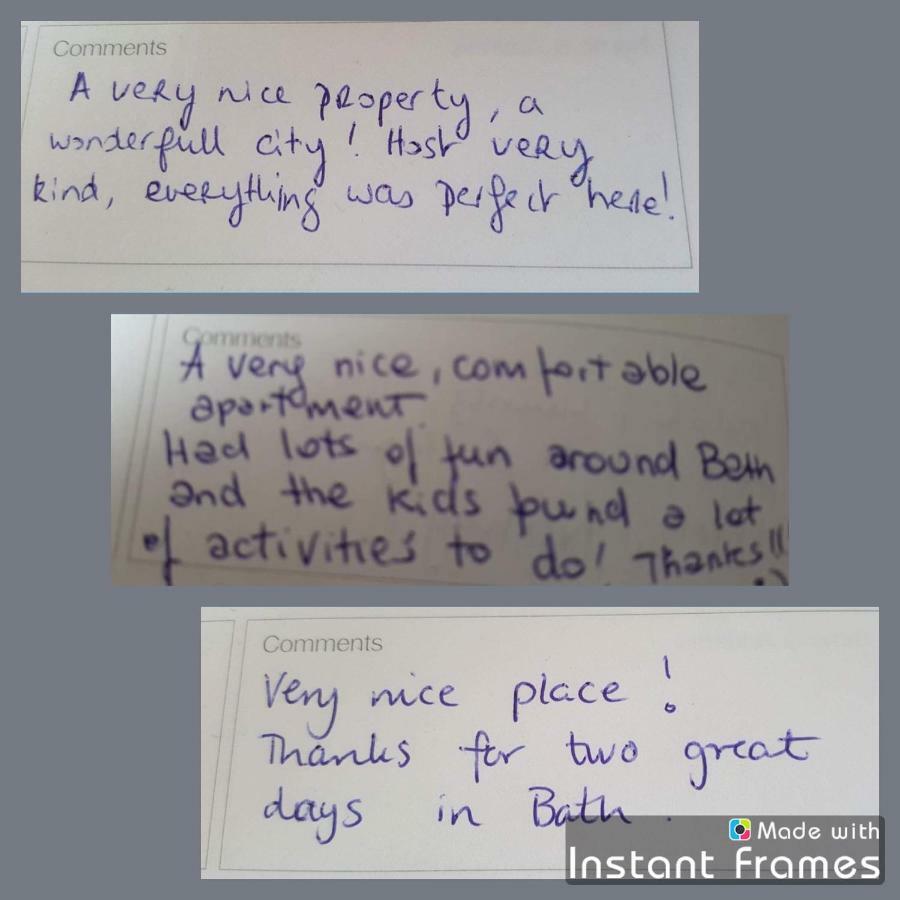 Comments
A very nice property, a
wonderfull city! Host very
kind, everything was perfect here!
Comments
A very nice, comfortable
apartment
Had lots of fun around Bath
and the kids found a lot
of activities to do! Thanks!!
:)
Comments
Very nice place!
Thanks for two great
days in Bath.
Made with
Instant Frames